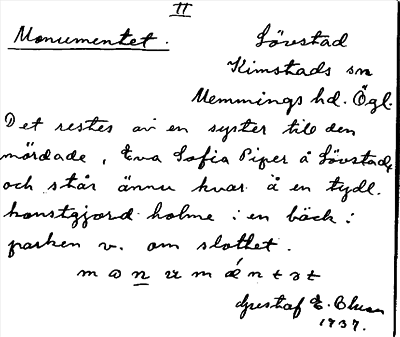 II
Monumentet.
Lövstad
Kimstads sn
Memmings hd. Ögl.
Det restes av en syster till den
mördade, Eva Sofia Piper å Lövstad,
och står ännu kvar å en tydl.
konstgjord holme i en bäck i
parken v. om slottet.
Gustaf E.
1937.